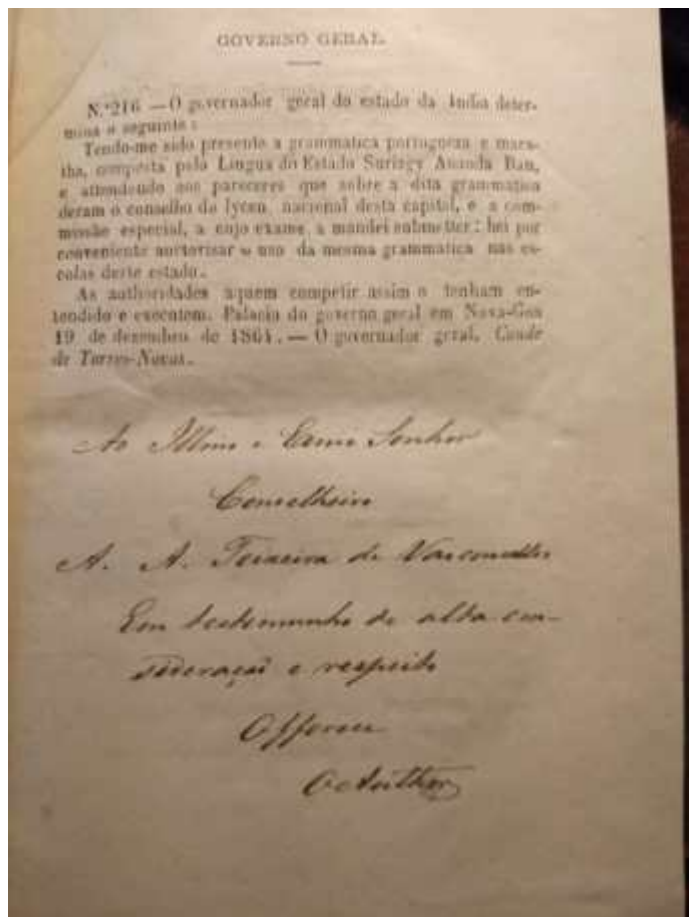 GOVERNO GERAL.
N.º 216 — O governador geral do estado da India deter-
mina o seguinte:
Tendo-me sido presente a grammatica portugueza e mara-
tha, composta pelo Lingua do Estado Suriagy Ananda Rau,
e attendendo aos pareceres que sobre a dita grammatica
deram o conselho do lyceu nacional desta capital, e a com-
missão especial, a cujo exame a mandei submetter: hei por
conveniente auctorisar o uso da mesma grammatica nas es-
colas deste estado.
As authoridades aquem competir assim o tenham en-
tendido e executem. Palacio do governo geral em Nova-Goa
19 de dezembro de 1864. — O governador geral, Conde
de Torres-Novas.
Ao Illmo e Exmo Senhor
Conselheiro
A. A. Teixeira de Vasconcellos
Em testemunho de alta con-
sideração e respeito
Offerece
O Author